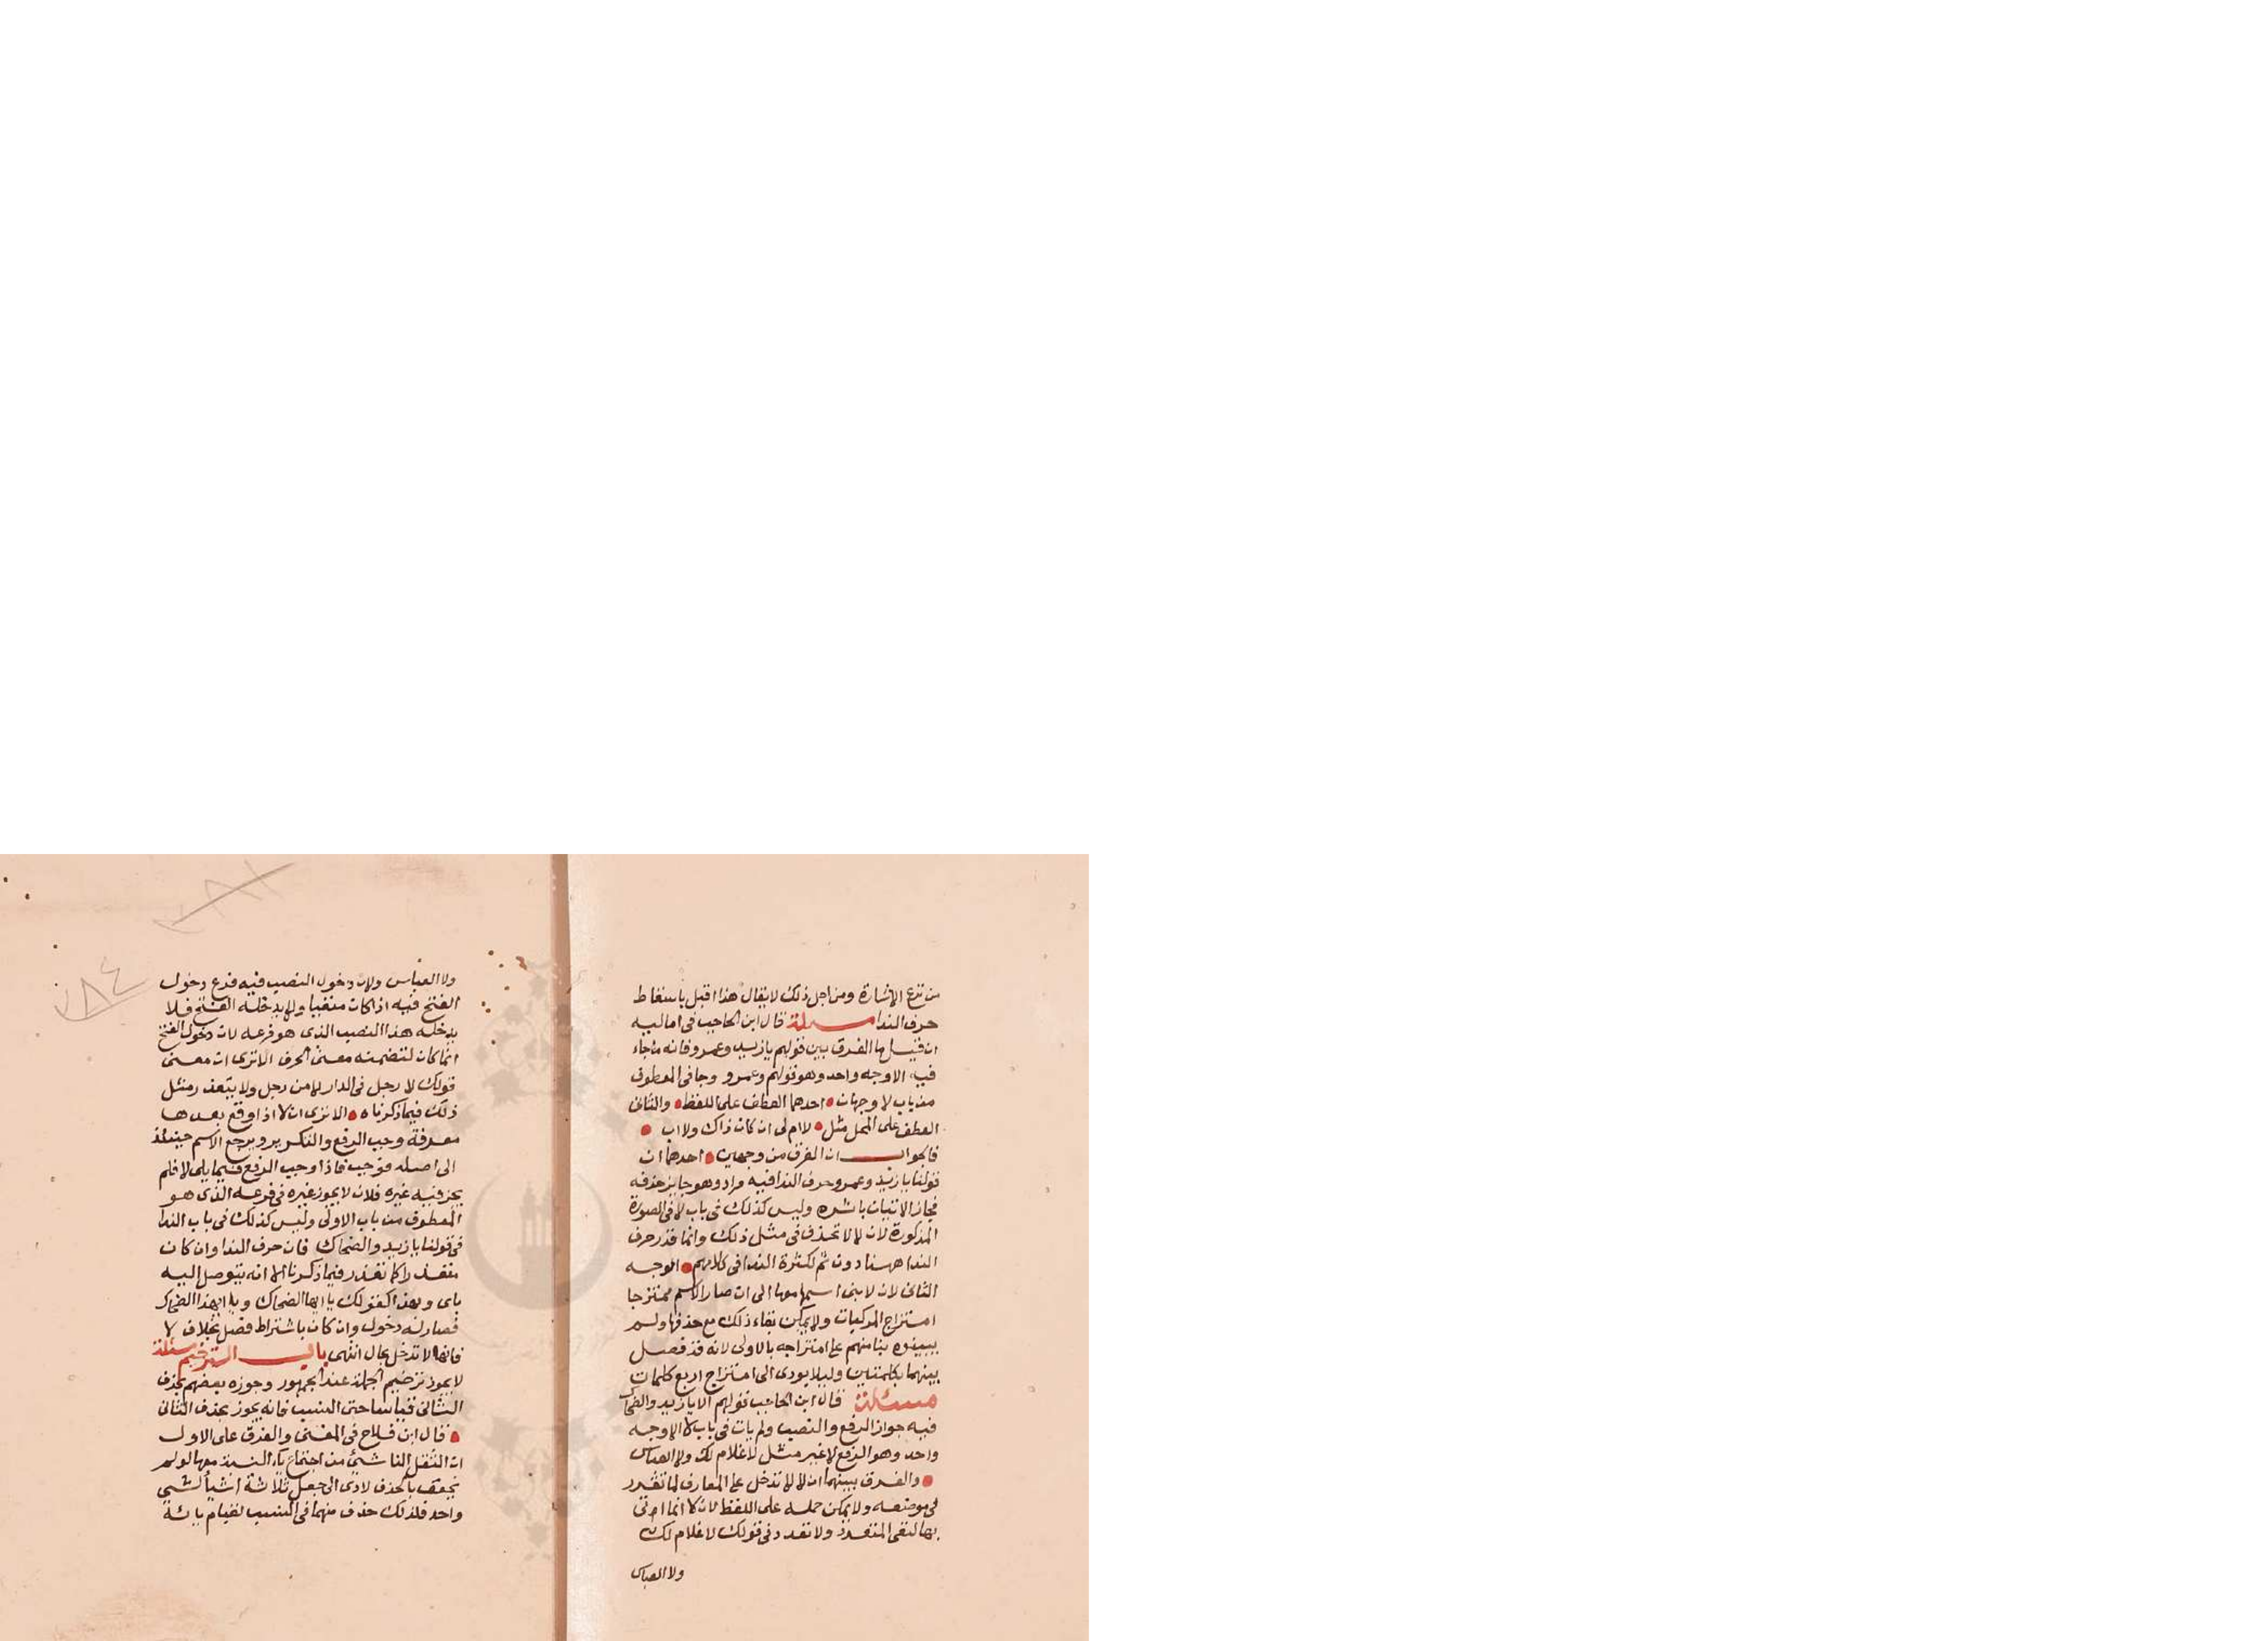 من نزع الاشارة ومن اجل ذلك لا يقال هذا اقبل باسقاط
حرف الندا مسئلة قال ابن الحاجب فى اماليه
ان قيل ما الفرق بين قولهم يا زيد وعمرو فانه ما جاء
فيه الا وجه واحد وهو قولهم وعمرو وجا فى المعطوف
من باب لا وجهان احدهما العطف على اللفظ والثانى
العطف على المحل مثل لا ام لى ان كان ذاك ولا اب
فالجواب ان الفرق من وجهين احدهما ان
قولنا يا زيد وعمرو حرف الندا فيه مراد وهو جايز حذفه
فجاز الاتيان باثره وليس كذلك فى باب لا فى الصورة
المذكورة لان لا لا تحذف فى مثل ذلك وانما قدر حرف
الندا ههنا دون ثم لكثرة الندا فى كلامهم الوجه
الثانى لان لا بنى اسمها معها الى ان صار الاسم ممتزجا
امتزاج المركبات ولا يمكن بقاء ذلك مع حذفها ولم
يبينوه بنا منهم على امتزاجه بالاولى لانه قد فصل
بينهما بكلمتين وليلا يودى الى امتزاج اربع كلمات
مسئلة قال ابن الحاجب قولهم الا يا زيد والضحاك
فيه جواز الرفع والنصب ولم يات فى باب لا الا وجه
واحد وهو الرفع لا غير مثل لا غلام لك ولا العباس
والفرق بينهما ان لا لا تدخل على المعارف لما تقرر
فى موضعه ولا يمكن حمله على اللفظ لان لا انما اتى
بها لنفى المتعدد ولا تعدد فى قولك لا غلام لك
ولا العباس
ولا العباس ولان دخول النصب فيه فرع دخول
الفتح فيه اذا كان منفيا ولا يدخله الفتح فلا
يدخله هذا النصب الذى هو فرعه لان دخول الفتح
انما كان لتضمنه معنى الحرف الا ترى ان معنى
قولك لا رجل فى الدار لا من رجل ولا يتقدر مثل
ذلك فيما ذكرناه الا ترى ان لا اذا وقع بعدها
معرفة وجب الرفع والتكرير ويرجع الاسم حينئذ
الى اصله فوجب فاذا وجب الرفع فيما يلى لا فلم
يجز فيه غيره فلان لا يجوز غيره فى فرعه الذى هو
المعطوف من باب الاولى وليس كذلك فى باب الندا
فى قولنا يا زيد والضحاك فان حرف الندا وان كان
متعذرا كما تعذر فيما ذكرنا الا انه يتوصل اليه
باى وبهذا كقولك يا ايها الضحاك ويا ايهذا الضحاك
فصار له دخول وان كان باشتراط فصل بخلاف لا
فانها لا تدخل بحال انتهى باب الترخيم مسئلة
لا يجوز ترخيم الجملة عند الجمهور وجوزه بعضهم بحذف
الثانى قياسا حتى النسب فانه يجوز بحذف الثانى
قال ابن فلاح فى المغنى والفرق على الاول
ان الثقل الناشئ من اجتماع ياء النسبة معها لو لم
يخفف بالحذف لادى الى جعل ثلاثة اشياء لشى
واحد فلذلك حذف منهما فى النسب لقيام يائه